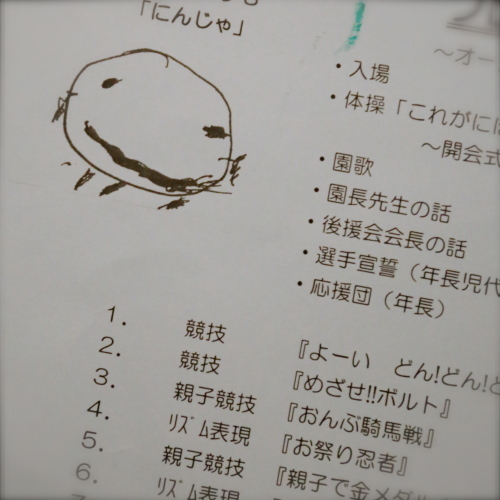 「にんじゃ」
～オー
・入場
・体操「これがにほ
～開会式
・園歌
・園長先生の話
・後援会会長の話
・選手宣誓（年長児代
・応援団（年長）
1. 競技 『よーい どん!どん!ど
2. 競技 『めざせ!!ボルト』
3. 親子競技 『おんぶ騎馬戦』
4. ﾘｽﾞﾑ表現 『お祭り忍者』
5. 親子競技 『親子で金メダ
6. ﾘｽﾞﾑ表現